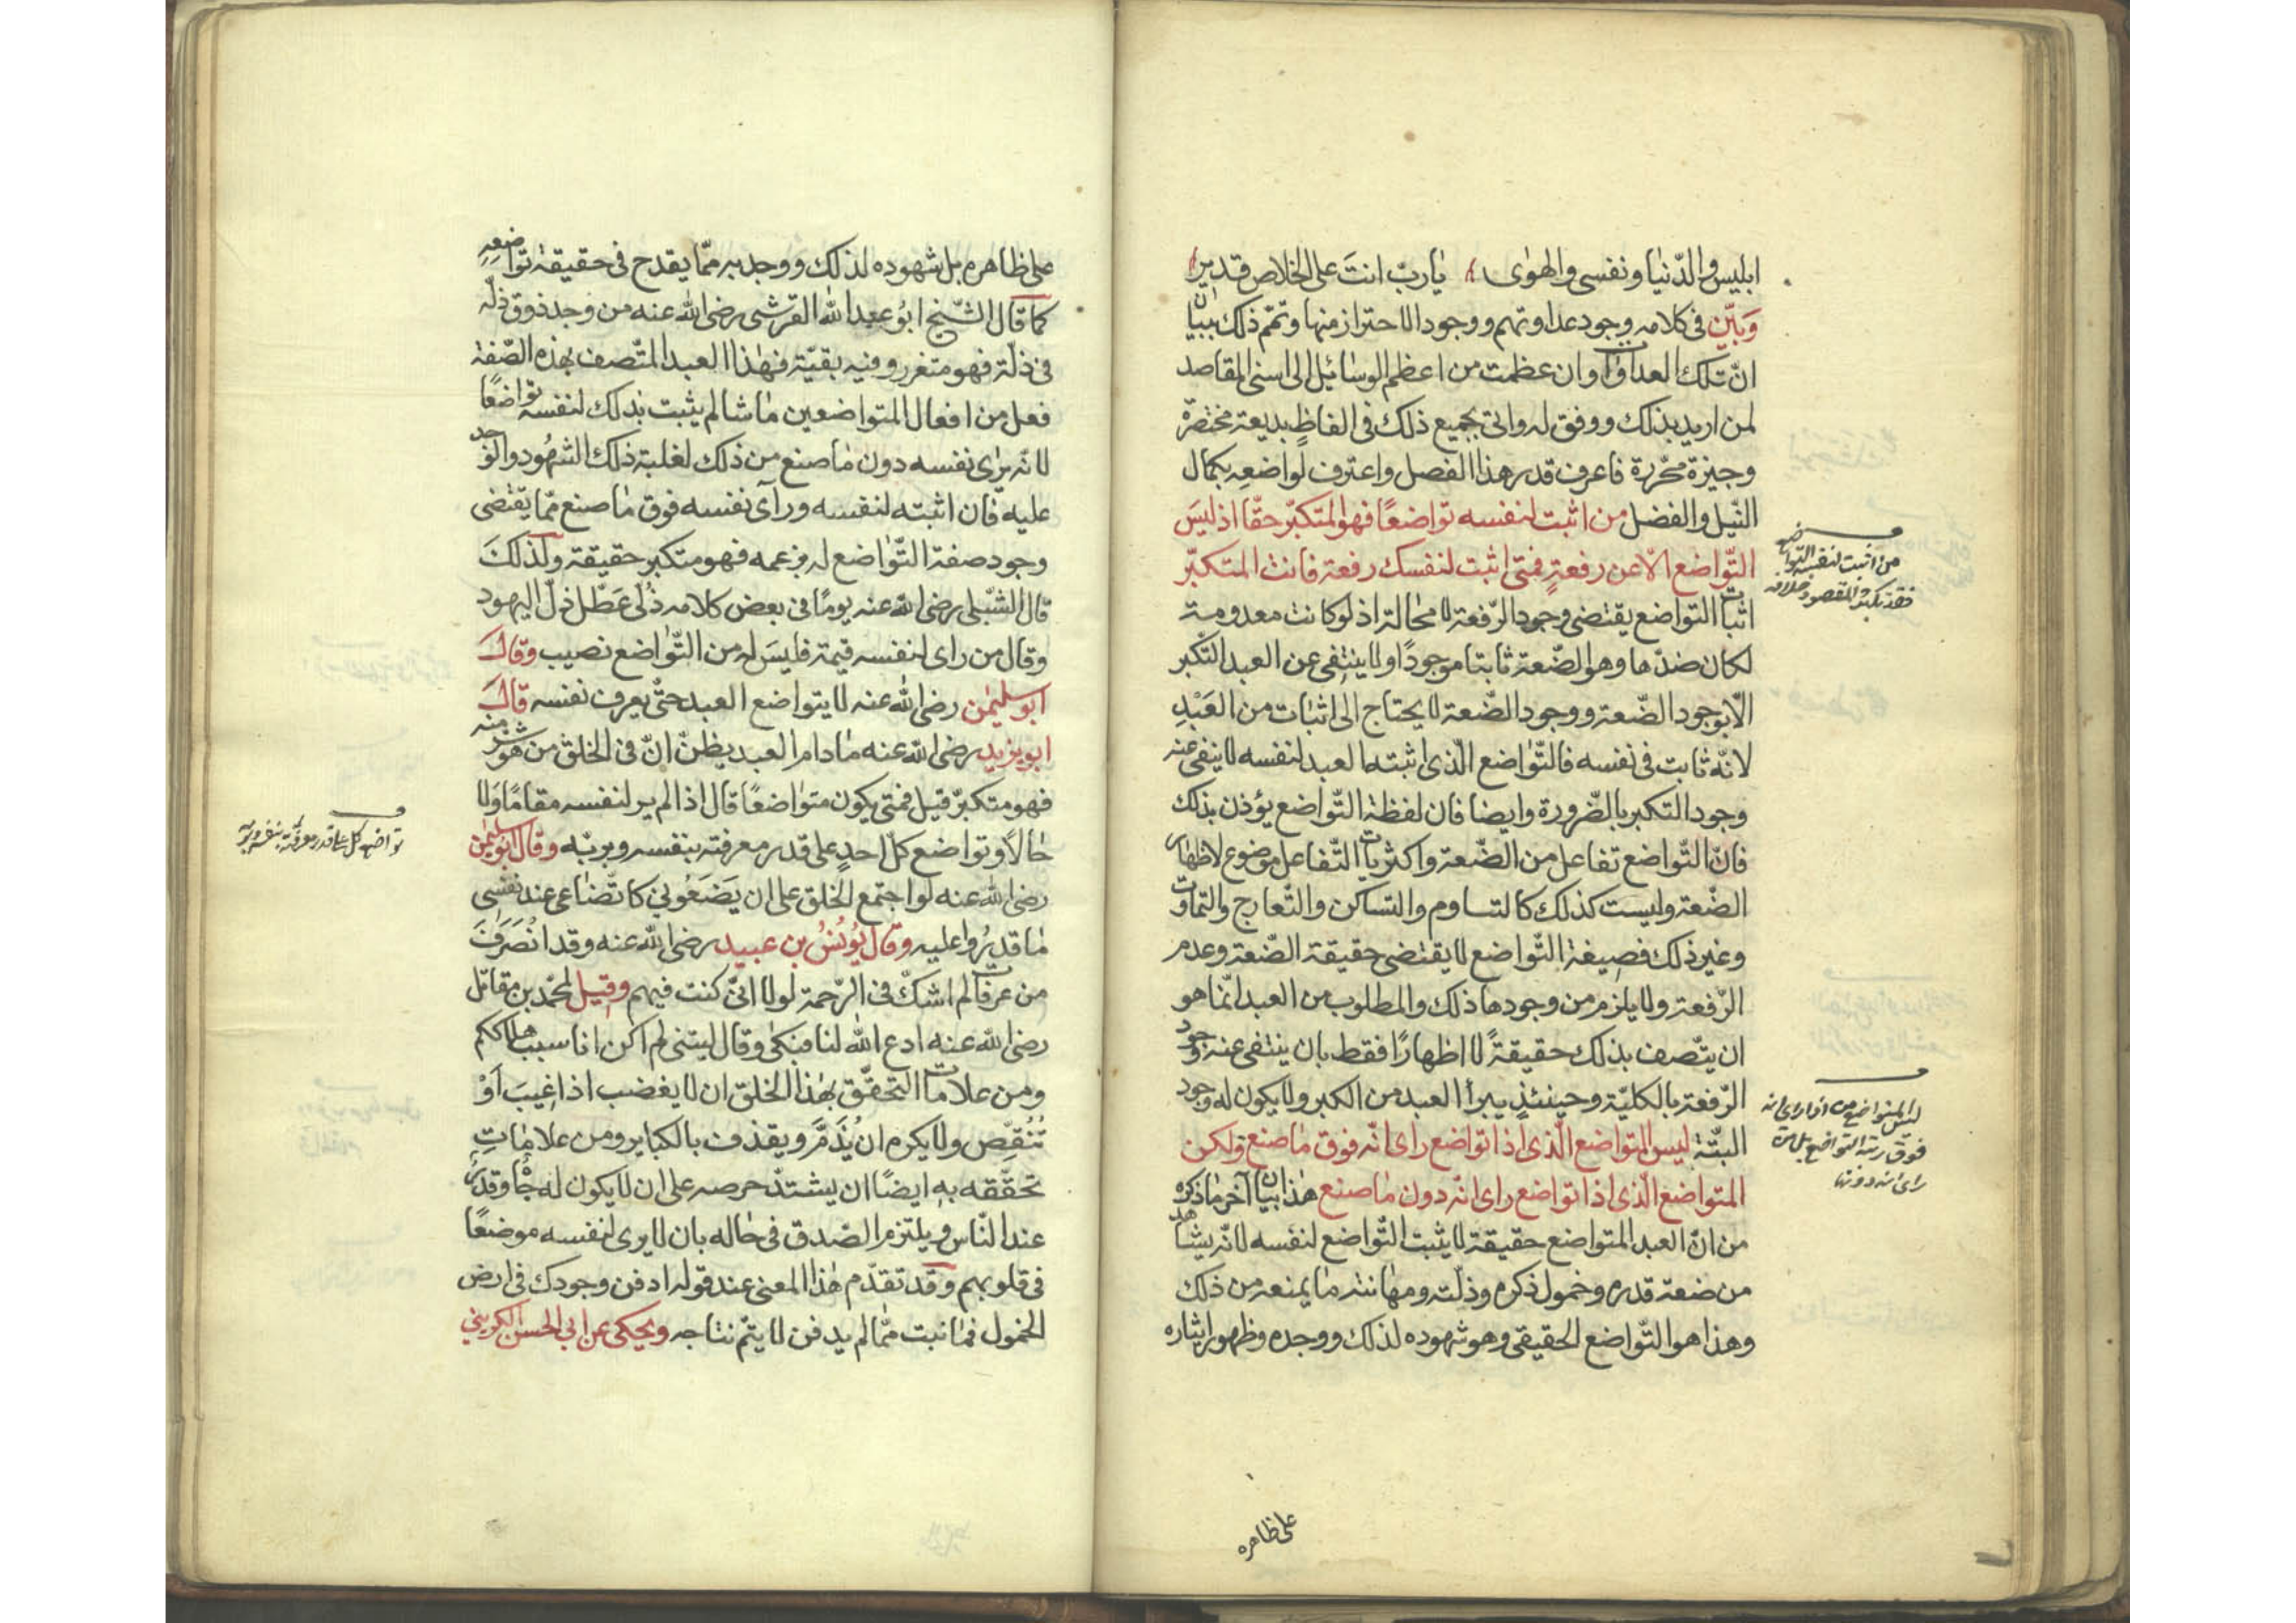 ابليس والدّنيا ونفسى والهوى يا ربّ انت على الخلاص قدير
وَبيّن فى كلامه وجود عداوتهم ووجود الاحتراز منها وتمّم ذلك ببيان
انّ تلك العداوات وان عظمت من اعظم الوسائل الى اسنى المقاصد
لمن اريد بذلك ووفق له واتى بجميع ذلك فى الفاظٍ بديعة مختصرة
وجيزة محرّرة فاعرف قدر هذا الفصل واعترف لواضعِه بكمال
النّيل والفضل من اثبت لنفسه تواضعًا فهو المتكبّر حقّا اذ ليسَ
التّواضع الّا عن رفعةٍ فمتى اثبت لنفسك رفعة فانت المتكبّر
اثبات التواضع يقتضى وجود الرّفعة لا محالة اذ لو كانت معدومة
لكان ضدّها وهو الضّعة ثابتا موجودًا ولا ينتفى عن العبد التّكبر
الّا بوجود الضّعة ووجود الضّعة لا يحتاج الى اثبات من العَبْدِ
لانّه ثابت فى نفسه فالتّواضع الّذى اثبته العبد لنفسه لا ينفى عنه
وجود التكبر بالضّرورة وايضا فان لفظة التّواضع يؤذن بذلك
فانّ التّواضع تفاعل من الضّعة واكثريات التّفاعل موضوع لاظهار
الضّعة وليست كذلك كالتساوم والتساكن والتّعارج والتماوت
وغير ذلك فصيغة التّواضع لا يقتضى حقيقة الضّعة وعدم
الرّفعة ولا يلزم من وجودها ذلك والمطلوب من العبد انّما هو
ان يتّصف بذلك حقيقةً لا اظهارًا فقط بان ينتفى عنه وجود
الرّفعة بالكليّة وحينئذٍ يبرأ العبد من الكبر ولا يكون له وجود
البتّة ليس المتواضع الّذى اذا تواضع راى انّه فوق ما صنع ولكن
المتواضع الّذى اذا تواضع راى انّه دون ما صنع هذا بيان آخر ما ذكره
من انّ العبد المتواضع حقيقة لا يثبت التّواضع لنفسه لانّه يشاهد
من ضعة قدره وخمول ذكره وذلّته ومهانته ما يمنعه من ذلك
وهذا هو التّواضع الحقيقى وهو شهوده لذلك ووجده وظهور ايثاره
من اثبت لنفسه التواضع
فقد تكبر والمقصود خلافه
ليس المتواضع من اذا راى انه
فوق رتبة التواضع بل من
راى انه دونها
على ظاهره
على ظاهره بل شهوده لذلك ووجد به ممّا يقدح فى حقيقة تواضعِه
كما قال الشّيخ ابو عبد الله القرشى رضى الله عنه من وجد ذوق ذلّه
فى ذلّة فهو متغرر وفيه بقيّة فهذا العبد المتّصف بهذه الصّفة
فعل من افعال المتواضعين ما شا لم يثبت بذلك لنفسه تواضعًا
لانّه يرى نفسه دون ما صنع من ذلك لغلبة ذلك الشهود والوجد
عليه فان اثبته لنفسه ورآى نفسه فوق ما صنع ممّا يقتضى
وجود صفة التّواضع له بزعمه فهو متكبر حقيقة ولذلكَ
قال الشّبلى رضى الله عنه يومًا فى بعض كلامه ذُلّى عَطّل ذلّ اليهود
وقال من راى لنفسه قيمة فليسَ له من التّواضع نصيب وقالَ
ابو سليمن رضى الله عنه لا يتواضع العبد حتّى يعرف نفسه قالَ
ابو يزيد رضى الله عنه ما دام العبد يظنّ انّ فى الخلق من هو شرّ منه
فهو متكبّر قيل فمتى يكون متواضعًا قال اذا لم ير لنفسه مقامًا ولا
حالًا وتواضع كلّ احدٍ على قدر معرفته بنفسه وبربّه وقال ابو سليمن
رضى الله عنه لو اجتمع الخلق على ان يَضَعُونى كاتّضاعى عند نفسى
ما قدرُوا عليه وقال يُونسُ بن عبيد رضى الله عنه وقد انْصَرَفَ
من عرفات لم اشكّ فى الرّحمة لولا انّى كنت فيهم وقيل لمحمّد بن مقاتل
رضى الله عنه ادع الله لنا فبكى وقال ليتنى لم اكن انا سبب هلاككم
ومن علامات التحقّق بهذا الخلق ان لا يغضب اذا عِيبَ اَوْ
تُنُقِّص ولا يكره ان يُذَمَّ ويقذف بالكبائر ومن علاماتِ
تحقّقه به ايضًا ان يشتدّ حرصه على ان لا يكون له جاه وقدر
عند النّاس ويلتزم الصّدق فى حاله بان لا يرى لنفسه موضعًا
فى قلوبهم وقد تقدّم هذا المعنى عند قوله ادفن وجودك فى ارض
الخمول فما نبت ممّا لم يدفن لا يتمّ نتاجه ويحكى عن ابى الحسن الكرينى
تواضع كل على قدر معرفته بنفسه وبربه